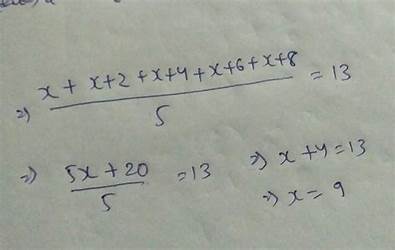 ⇒ (x + x+2 + x+4 + x+6 + x+8)/5 = 13
⇒ (5x + 20)/5 = 13 ⇒ x + 4 = 13
⇒ x = 9